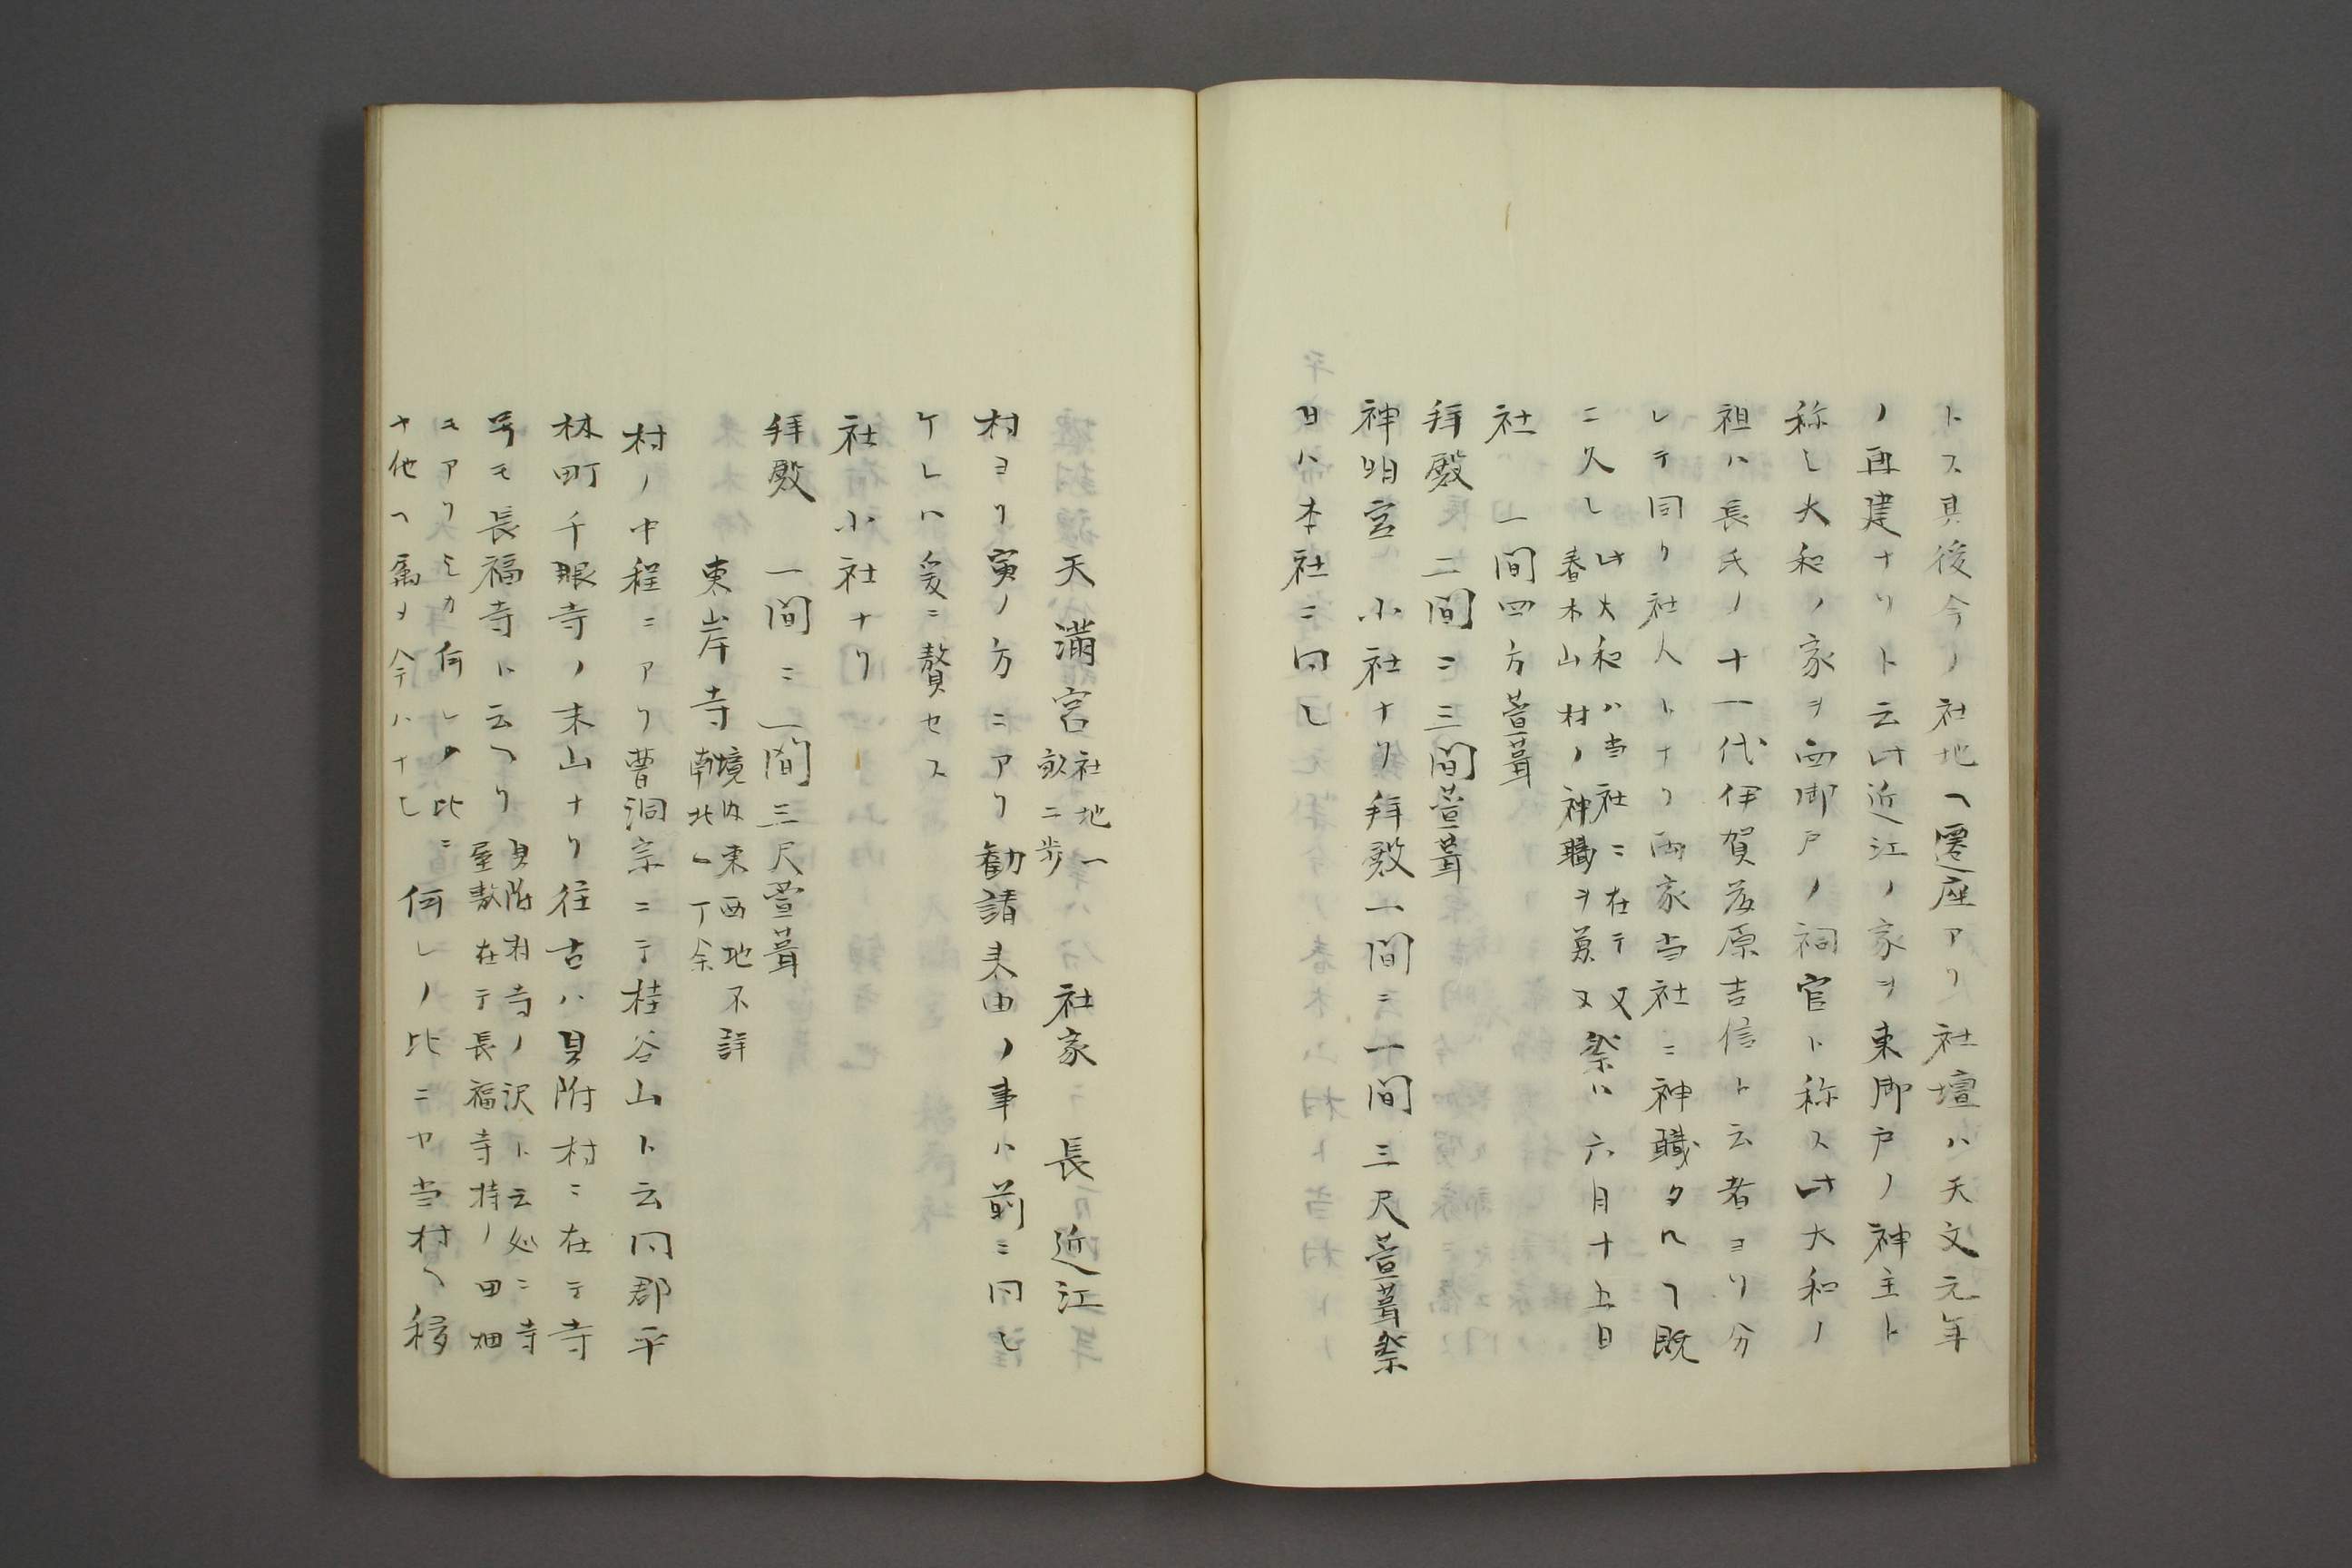 トス其後今ノ社地ヘ遷座アリ社壇ハ天文元年
ノ再建ナリト云此近江ノ家ヲ東御戸ノ神主ト
称シ大和ノ家ヲ西御戸ノ祠官ト称ス此大和ノ
祖ハ長氏ノ十一代伊賀藤原吉信ト云者ヨリ分
レテ同ク社人トナリ両家当社ニ神職タルヿ既
ニ久シ
此大和ハ当社ニ在テ又
春木山村ノ神職ヲ兼ヌ
祭ハ六月十五日
社 一間四方萱葺
拜殿 二間ニ三間萱葺
神明宮 小社ナリ拜殿一間ニ一間三尺萱葺祭
日ハ本社ニ同シ
天滿宮
社地一
畝二歩
社家 長 近江
村ヨリ寅ノ方ニアリ勧請来由ノ事ハ前ニ同シ
ケレハ爰ニ贅セス
社 小社ナリ
拜殿 一間ニ一間三尺萱葺
東岸寺
境内東西地不詳
南北一丁余
村ノ中程ニアリ曹洞宗ニテ桂谷山ト云同郡平
林町千眼寺ノ末山ナリ往古ハ貝附村ニ在テ寺
号モ長福寺ト云ヘリ
貝附村寺ノ沢ト云処ニ寺
屋敷在テ長福寺持ノ田畑
モアリシカ何レノ比ニ
ヤ他ヘ属ヲ今ハナシ
何レノ比ニヤ当村ヘ移